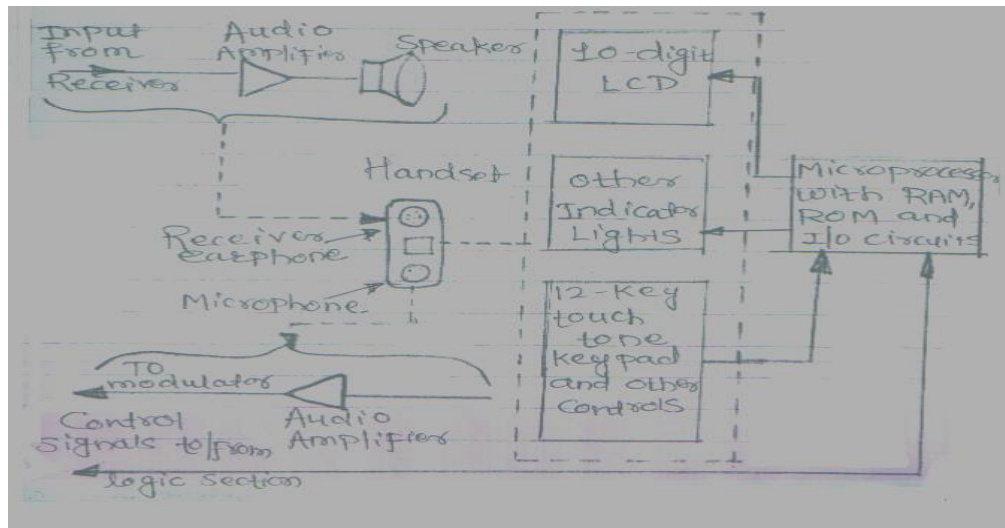 Input
from
Receiver
Audio
Amplifier
Speaker
10-digit
LCD
Handset
Receiver
earphone
Microphone
Other
Indicator
Lights
Microprocessor
with RAM,
ROM and
I/o circuits
12-Key
touch
tone
Keypad
and other
Controls
TO
modulator
Audio
Amplifier
Control
Signals to/from
logic section